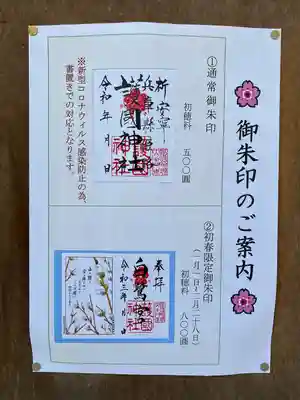 御朱印のご案内
①通常御朱印
初穂料 五〇〇圓
祈安寧
兵庫縣姫路
護國神社
令和 年 月 日
※新型コロナウィルス感染防止の為、
書置きでの対応となります。
②初春限定御朱印
(一月一日~二月二十八日)
初穂料 八〇〇圓
奉拝
白鷺宮
令和三年 月 日